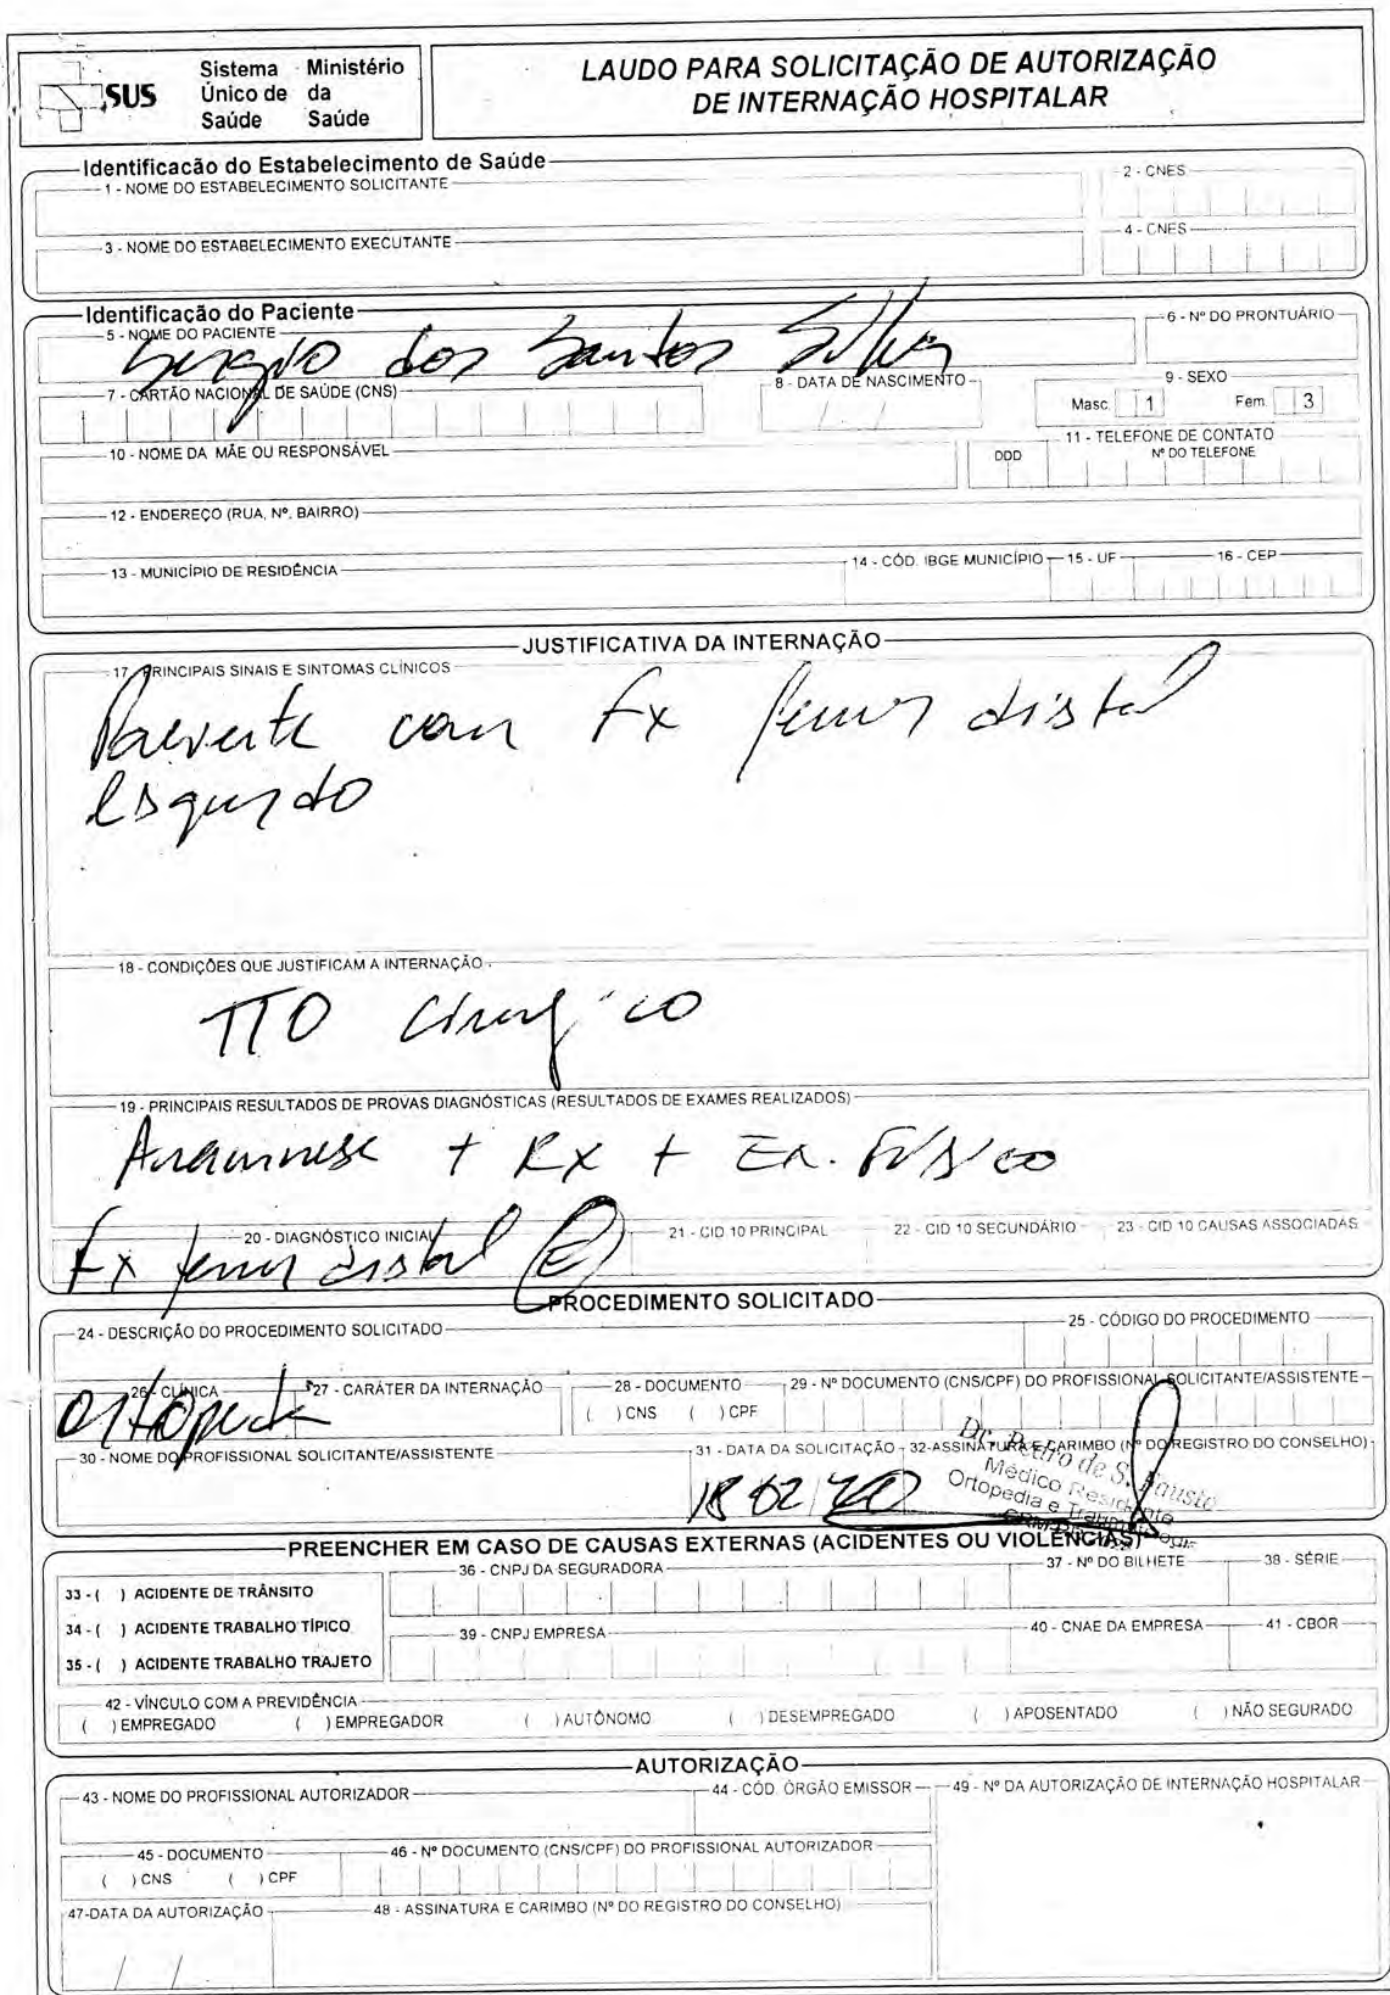 SUS
Sistema Único de Saúde
Ministério da Saúde
LAUDO PARA SOLICITAÇÃO DE AUTORIZAÇÃO
DE INTERNAÇÃO HOSPITALAR
Identificacão do Estabelecimento de Saúde
1 - NOME DO ESTABELECIMENTO SOLICITANTE
2 - CNES
3 - NOME DO ESTABELECIMENTO EXECUTANTE
4 - CNES
Identificação do Paciente
5 - NOME DO PACIENTE
6 - Nº DO PRONTUÁRIO
Sergio dos Santos Silva
7 - CARTÃO NACIONAL DE SAÚDE (CNS)
8 - DATA DE NASCIMENTO
/ /
9 - SEXO
Masc. 1 Fem. 3
10 - NOME DA MÃE OU RESPONSÁVEL
11 - TELEFONE DE CONTATO
DDD Nº DO TELEFONE
12 - ENDEREÇO (RUA, Nº, BAIRRO)
13 - MUNICÍPIO DE RESIDÊNCIA
14 - CÓD. IBGE MUNICÍPIO
15 - UF
16 - CEP
JUSTIFICATIVA DA INTERNAÇÃO
17 - PRINCIPAIS SINAIS E SINTOMAS CLÍNICOS
Paciente com Fx femur distal
esquerdo
18 - CONDIÇÕES QUE JUSTIFICAM A INTERNAÇÃO
TTO cirurgico
19 - PRINCIPAIS RESULTADOS DE PROVAS DIAGNÓSTICAS (RESULTADOS DE EXAMES REALIZADOS)
Anamnese + Rx + Ex. Físico
20 - DIAGNÓSTICO INICIAL
21 - CID 10 PRINCIPAL
22 - CID 10 SECUNDÁRIO
23 - CID 10 CAUSAS ASSOCIADAS
Fx femur distal E
PROCEDIMENTO SOLICITADO
24 - DESCRIÇÃO DO PROCEDIMENTO SOLICITADO
25 - CÓDIGO DO PROCEDIMENTO
26 - CLÍNICA
27 - CARÁTER DA INTERNAÇÃO
28 - DOCUMENTO
( ) CNS ( ) CPF
29 - Nº DOCUMENTO (CNS/CPF) DO PROFISSIONAL SOLICITANTE/ASSISTENTE
30 - NOME DO PROFISSIONAL SOLICITANTE/ASSISTENTE
31 - DATA DA SOLICITAÇÃO
18 02 20
32-ASSINATURA E CARIMBO (Nº DO REGISTRO DO CONSELHO)
Dr. Pedro de S. Fausto
Médico Residente
Ortopedia e Traumatologia
PREENCHER EM CASO DE CAUSAS EXTERNAS (ACIDENTES OU VIOLÊNCIAS)
33 - ( ) ACIDENTE DE TRÂNSITO
34 - ( ) ACIDENTE TRABALHO TÍPICO
35 - ( ) ACIDENTE TRABALHO TRAJETO
36 - CNPJ DA SEGURADORA
37 - Nº DO BILHETE
38 - SÉRIE
39 - CNPJ EMPRESA
40 - CNAE DA EMPRESA
41 - CBOR
42 - VÍNCULO COM A PREVIDÊNCIA
( ) EMPREGADO ( ) EMPREGADOR ( ) AUTÔNOMO ( ) DESEMPREGADO ( ) APOSENTADO ( ) NÃO SEGURADO
AUTORIZAÇÃO
43 - NOME DO PROFISSIONAL AUTORIZADOR
44 - CÓD. ÓRGÃO EMISSOR
49 - Nº DA AUTORIZAÇÃO DE INTERNAÇÃO HOSPITALAR
45 - DOCUMENTO
( ) CNS ( ) CPF
46 - Nº DOCUMENTO (CNS/CPF) DO PROFISSIONAL AUTORIZADOR
47-DATA DA AUTORIZAÇÃO
/ /
48 - ASSINATURA E CARIMBO (Nº DO REGISTRO DO CONSELHO)